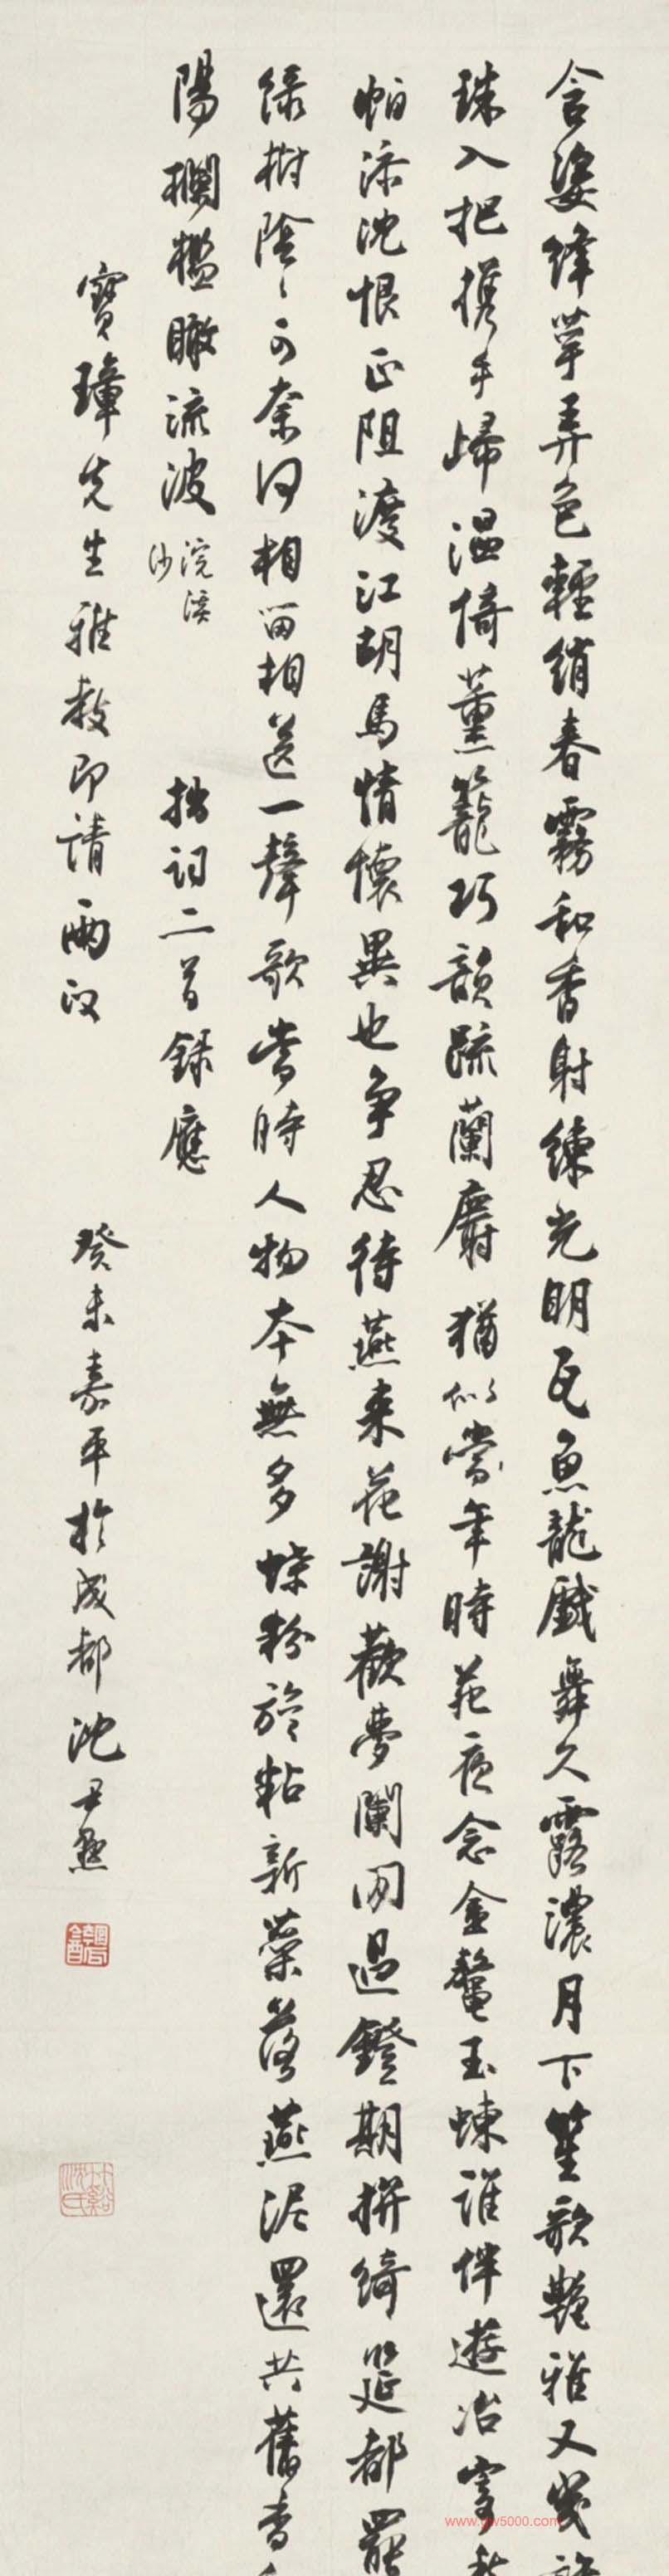 含姿绛萼弄色輕綃春霧和香射練光明瓦魚龍戲舞久露濃月下笙歌艷雅又幾
珠入把携手歸温倚薰籠巧韻疏蘭麝猶似當年時花夜念金鰲玉蝀誰伴遊冶
帕添沈恨正阻渡江胡馬情懷異也争忍待燕来花謝歡夢闌回過鐙期拚綺筵都罷
绿樹陰〻可奈何相留相送一聲歌當時人物本無多蝶粉旋粘新蘂落燕泥還共舊香
陽欄檻瞰流波浣溪沙 拙詞二首録應
寶璋先生雅教即請兩政 癸未嘉平於成都沈尹默
www.zw5000.com